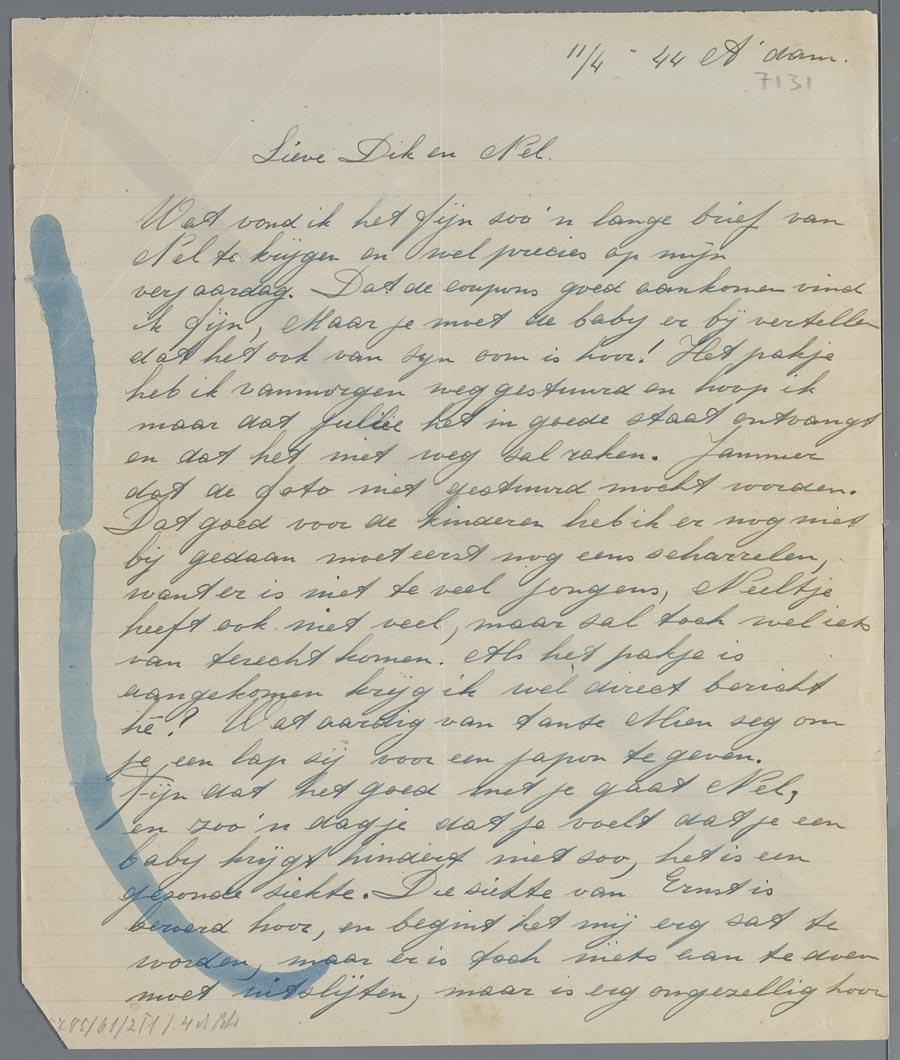 11/4 - 44 A'dam.
7131
Lieve Dik en Nel.
Wat vond ik het fijn zoo'n lange brief van
Nel te krijgen en wel precies op mijn
verjaardag. Dat de coupons goed aankomen vind
ik fijn, Maar je moet de baby er bij vertellen
dat het ook van zijn oom is hoor! Het pakje
heb ik vanmorgen weggestuurd en hoop ik
maar dat jullie het in goede staat ontvangt
en dat het niet weg zal raken. Jammer
dat de foto niet gestuurd mocht worden.
Dat goed voor de kinderen heb ik er nog niet
bij gedaan moet eerst nog eens scharrelen,
want er is niet te veel jongens, Neeltje
heeft ook niet veel, maar zal toch wel iets
van terecht komen. Als het pakje is
aangekomen krijg ik wel direct bericht
hè? Wat aardig van tante Mien zeg om
je een lap zij voor een japon te geven.
Fijn dat het goed met je gaat Nel,
en zoo'n dagje dat je voelt dat je een
baby krijgt hindert niet zoo, het is een
gezonde ziekte. Die ziekte van Ernst is
beroerd hoor, en begint het mij erg zat te
worden, maar er is toch niets aan te doen
moet uitslijten, maar is erg ongezellig hoor